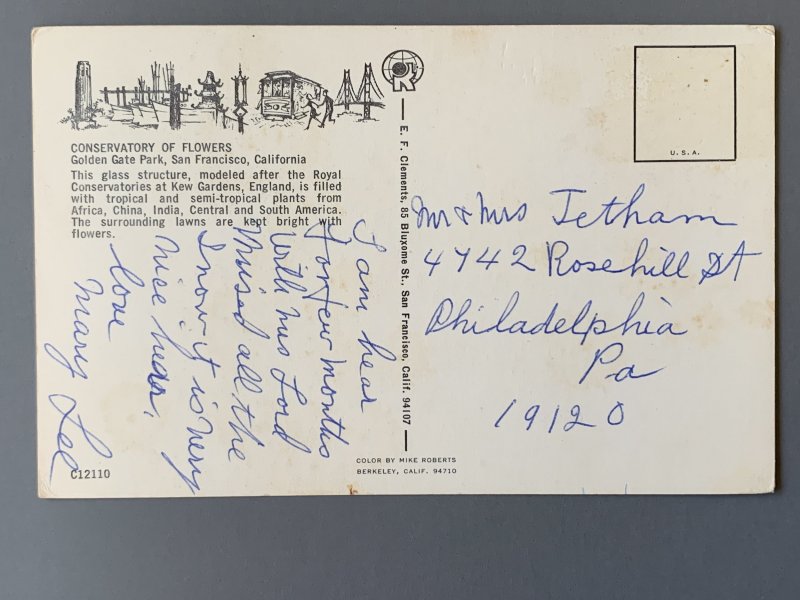 CONSERVATORY OF FLOWERS
Golden Gate Park, San Francisco, California
This glass structure, modeled after the Royal
Conservatories at Kew Gardens, England, is filled
with tropical and semi-tropical plants from
Africa, China, India, Central and South America.
The surrounding lawns are kept bright with
flowers.
I am hear
for few months
with Mrs Lord
Missed all the
Snow it is very
nice hear.
love
Mary Lee
C12110
E. F. Clements, 85 Bluxome St., San Francisco, Calif. 94107
COLOR BY MIKE ROBERTS
BERKELEY, CALIF. 94710
U. S. A.
Mr & Mrs Tetham
4742 Rosehill St
Philadelphia
Pa
19120